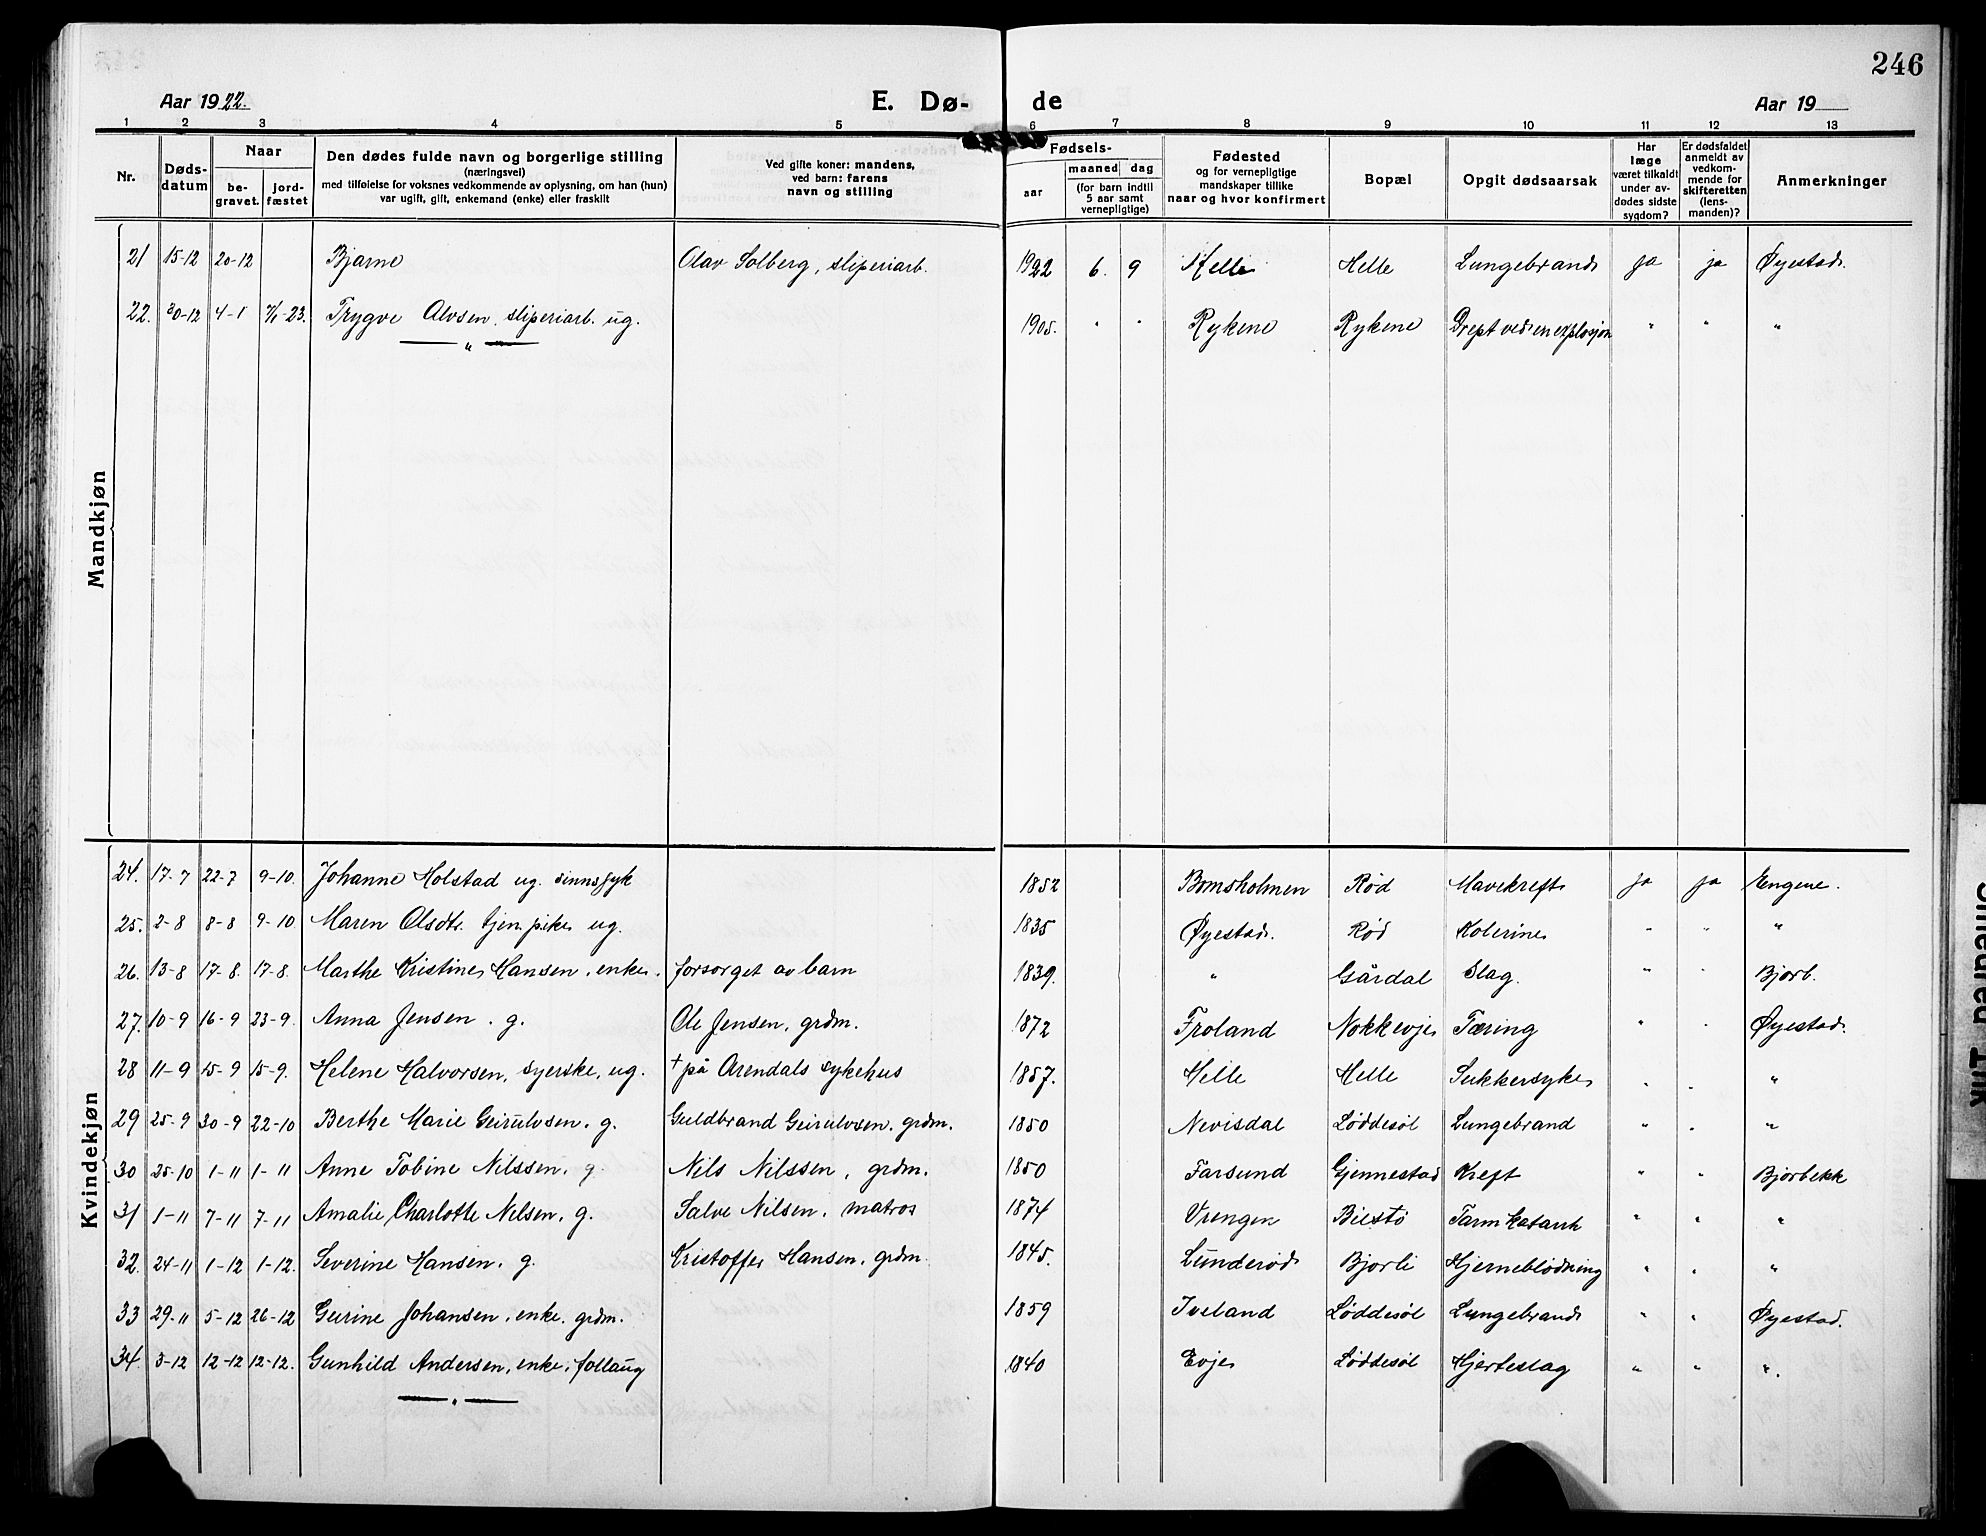 246
Aar 1922. E. Dø- de Aar 19
1 2 3 4 5 6 7 8 9 10 11 12 13
Nr. Døds-datum Naar be-gravet. jord-fæstet Den dødes fulde navn og borgerlige stilling (næringsvei) med tilføielse for voksnes vedkommende av oplysning, om han (hun) var ugift, gift, enkemand (enke) eller fraskilt Ved gifte koner: mandens, ved barn: farens navn og stilling Fødsels- aar maaned dag (for barn indtil 5 aar samt vernepligtige) Fødested og for vernepligtige mandskaper tillike naar og hvor konfirmert Bopæl Opgit dødsaarsak Har læge været tilkaldt under av-dødes sidste sygdom? Er dødsfaldet anmeldt av vedkom-mende for skifteretten (lens-manden)? Anmerkninger
Mandkjøn
21 15-12 20-12 Bjarne Olav Solberg, sliperiarb. 1922 6. 9 Helle Helle Lungebrand ja ja Øyestad.
22. 30-12 4-1 7/1-23. Trygve Alvsen. sliperiarb. ug. 1905. " " Rykene Rykene Drept ved en explosjon " " "
Kvindekjøn
24. 17-7 22-7 9-10. Johanne Holstad ug. sinnssyk 1852 Bomsholmen Rød Mavekreft ja ja Engene.
25. 2-8 8-8 9-10 Maren Olsdtr. tjen. pike ug. 1835 Øyestad. Rød Kolerine " " "
26. 13-8 17-8. 17-8. Marthe Kristine Hansen, enke. forsorget av barn 1839. " Gårdal Slag. " " Bjorb.
27. 10-9 16-9 23-9. Anna Jensen. g. Ole Jensen, grdm. 1872 Froland Nokkevje Tæring " " Øyestad.
28 11-9 15-9 15-9. Helene Halvorsen, syerske, ug. † på Arendals sykehus 1857. Helle Helle Sukkersyke " " "
29 25-9 30-9 22-10 Berthe Marie Geirulvsen. g. Guldbrand Geirulvsen. grdm. 1850 Nevisdal Løddesøl Lungebrand " " "
30 25-10 1-11 1-11 Anne Tobine Nilssen. g. Nils Nilssen, grdm. 1850 Farsund Gjennestad Kreft " " Bjorbekk
31 1-11 7-11 7-11 Amalie Charlotte Nelsen. g. Salve Nilsen. matros 1874 Vrengen Bilstø Tarmkatarrh " " "
32. 24-11 1-12 1-12. Severine Hansen. g. Kristoffer Hansen. grdm. 1845. Lunderød Bjorli Hjerneblødning " " "
33 29-11 5-12 26-12 Geirine Johansen, enke. grdm. 1859 Iveland Løddesøl Lungebrand " " Øyestad.
34. 3-12 12-12 12-12. Gunhild Andersen, enke, follaug 1840 Evje Løddesøl Hjerteslag " " "